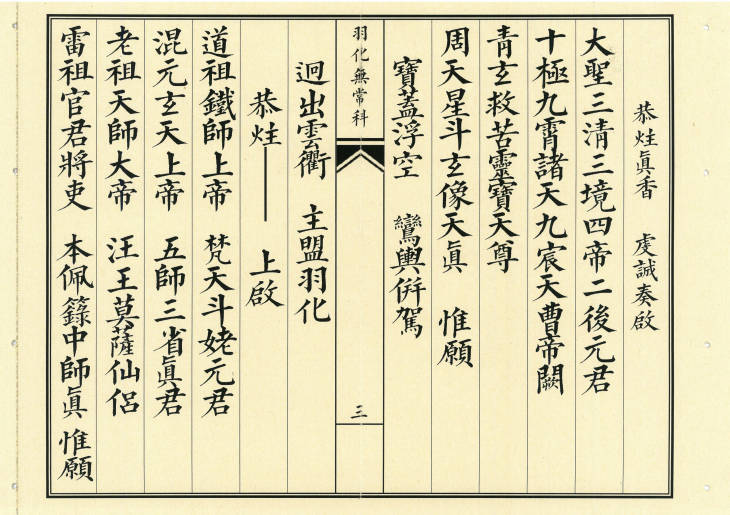 恭炷眞香　虔誠奏啟
大聖三清三境四帝二後元君
十極九霄諸天九宸天曹帝闕
青玄救苦靈寶天尊
周天星斗玄像天眞　惟願
寶蓋浮空　鸞輿倂駕
羽化無常科
三
迥出雲衢　主盟羽化
恭炷——　上啟
道祖鐵師上帝　梵天斗姥元君
混元玄天上帝　五師三省眞君
老祖天師大帝　汪王莫薩仙侶
雷祖官君將吏　本佩籙中師眞　惟願